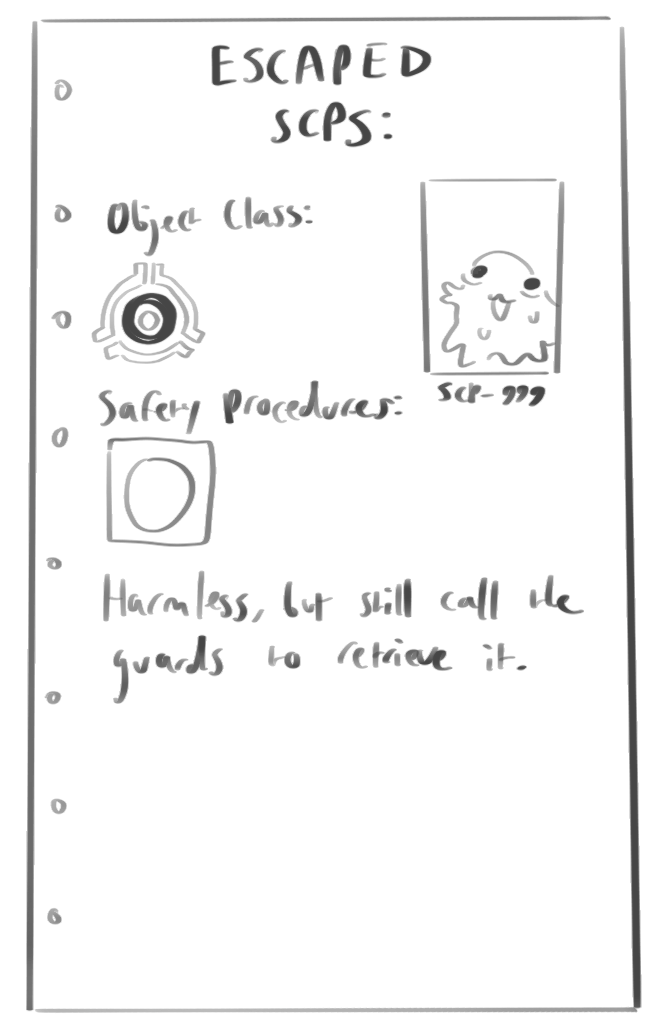 ESCAPED
SCPS:
Object Class:
SCP-999
Safety Procedures:
Harmless, but still call the
guards to retrieve it.